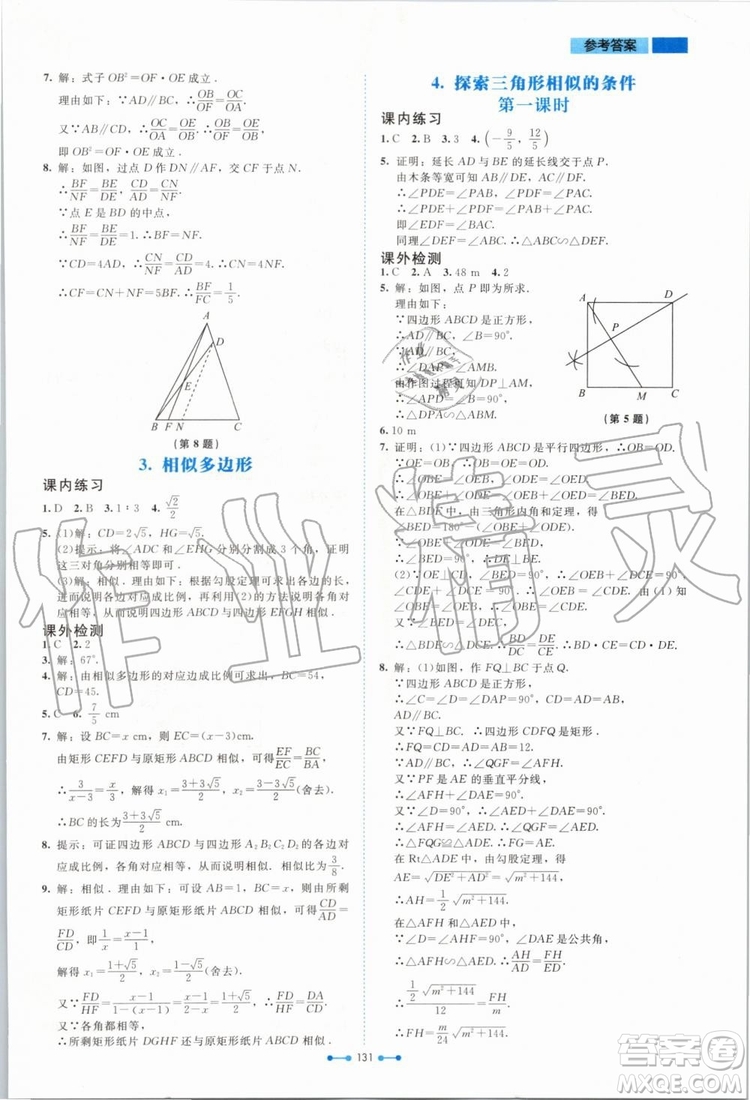 参考答案
7. 解：式子 OB²=OF·OE 成立.
理由如下：∵AD∥BC，∴OB/OA=OF/OB.
又∵AB∥DC，∴OC/OA=OE/OB，∴OB/OE=OF/OB.
即 OB²=OF·OE 成立.
8. 解：如图，过点 D 作 DN∥AF，交 CF 于点 N.
∴BF/NF=BE/DE，CD/AD=CN/NF.
∵点 E 是 BD 的中点，
∴BF/NF=BE/DE=1. ∴BF=NF.
∵CD=4AD，∴CN/NF=CD/AD=4. ∴CN=4NF.
∴CF=CN+NF=4BF+BF=5BF. ∴BF/FC=1/5.
A
D
E
B F N C
(第 8 题)
3. 相似多边形
课内练习
1. D 2. B 3. 1∶3 4. √2/2
5. (1)解：CD=2√5，HG=√5.
(2)提示：将∠ADC 和∠EHG 分别分割成 3 个角，证明
这三对角分别相等即可.
(3)解：相似. 理由如下：根据勾股定理可求出各边的长，
进而说明各边对应成比例，再利用(2)的方法说明各角
对应相等，从而说明四边形 ABCD 与四边形 EFGH 相似.
课外检测
1. C 2. 2
3. 解：67°.
4. 解：由相似多边形的对应边成比例可求出 BC=54，
CD=45.
5. C 6. 7/5 cm
7. 解：设 BC=x cm，则 EC=(x−3)cm.
由矩形 CEFD 与原矩形 ABCD 相似，可得EF/EC=BC/BA.
∴3/(x−3)=x/3. 解得 x₁=(3+3√5)/2，x₂=(3−3√5)/2(舍去).
∴BC 的长为(3+3√5)/2 cm.
8. 提示：可证四边形 ABCD 与四边形 A₂B₂C₂D₂ 的各边对
应成比例，各角对应相等，从而说明相似. 相似比为3/8.
9. 解：相似. 理由如下：设 AB=1，BC=x，则由所剩
矩形纸片 CDFE 与原矩形纸片 ABCD 相似，可得CD/AD=
FD/CD，即1/x=(x−1)/1.
解得 x₁=(1+√5)/2，x₂=(1−√5)/2(舍去).
又∵FD/HF=(x−1)/(1−(x−1))=(x−1)/(2−x)=(1+√5)/2，∴FD/HF=DA/CD.
又∵各角都相等，
∴所剩矩形纸片 DGHF 还与原矩形纸片 ABCD 相似.
4. 探索三角形相似的条件
第一课时
课内练习
1. C 2. B 3. 3 4. (−9/5，12/5)
5. 证明：延长 AD 与 BE 的延长线交于点 P.
由木条等宽可知 DE∥AB，DF∥AC.
∴∠PDE=∠PAB，∠PDF=∠PAC.
∴∠PDE+∠PDF=∠PAB+∠PAC.
即∠EDF=∠BAC.
同理∠DEF=∠ABC. ∴△ABC∽△DEF.
课外检测
1. C 2. A 3. 48 m 4. 2
5. 解：如图，点 P 即为所求.
理由如下：
∵四边形 ABCD 是正方形，
∴AD∥BC，∠B=90°.
∵AD∥BC，
∴∠DAP=∠AMB.
由作图过程可知 DP⊥AM，
∴∠APD=∠B=90°，
∴△DPA∽△ABM.
A D
P
B M C
(第 5 题)
6. 10 m
7. 证明：(1)∵四边形 ABCD 是平行四边形，∴OB=OD.
又∵OE=OB，∴OE=OD.
∴∠OBE=∠OEB，∠OED=∠ODE.
∴∠OBE+∠ODE=∠OEB+∠OED=∠BED.
在△BED 中，由三角形内角和定理，得
∠BED=180°−(∠OBE+∠ODE).
∴∠BED=90°. ∴DE⊥BE.
(2)∵OE⊥CD，∴∠OEB+∠CDE=90°. 又由(1)
知∠OBE=∠OEB，∴∠OBE+∠CDE=90°. 又
∵∠BED=90°，
∴△BDE∽△DCE. ∴BD/DC=DE/CE. ∴BD·CE=CD·DE.
8. 解：(1)如图，作 FQ⊥BC 于点 Q.
∵四边形 ABCD 是正方形，
∴∠C=∠D=90°，CD=AD=12.
又∵FQ⊥BC，∴四边形 CDFQ 是矩形.
∴FQ=CD=AD=12.
∴∠FQG=∠D=90°.
又∵PF 是 AE 的垂直平分线，
∴∠AFH+∠DAE=90°.
又∵∠D=90°，∴∠AED+∠DAE=90°.
∴∠AFH=∠AED. ∴∠QGF=∠AED.
∴△FQG≌△ADE. ∴FG=AE.
在 Rt△ADE 中，由勾股定理，得
AE=√(DE²+AD²)=√(m²+144)，
∴AH=1/2 AE=1/2 √(m²+144).
在△AFH 和△AED 中，
∵∠AHF=∠D=90°，∠DAE 是公共角，
∴△AFH∽△AED. ∴AH/AD=FH/DE，
即(1/2 √(m²+144))/12=FH/m.
∴FH=m√(m²+144)/24.
131